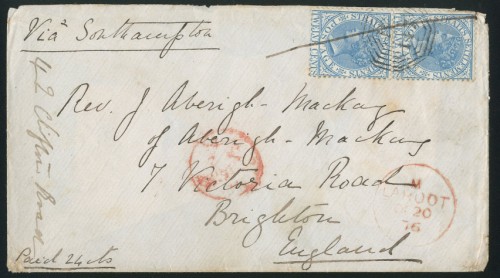 Via Southampton
Rev. J Aberigh-Mackay
of Aberigh-Mackay
7 Victoria Road
Brighton
England
Paid 24 cts
42 Clifton Road
STRAITS SETTLEMENTS
20
76